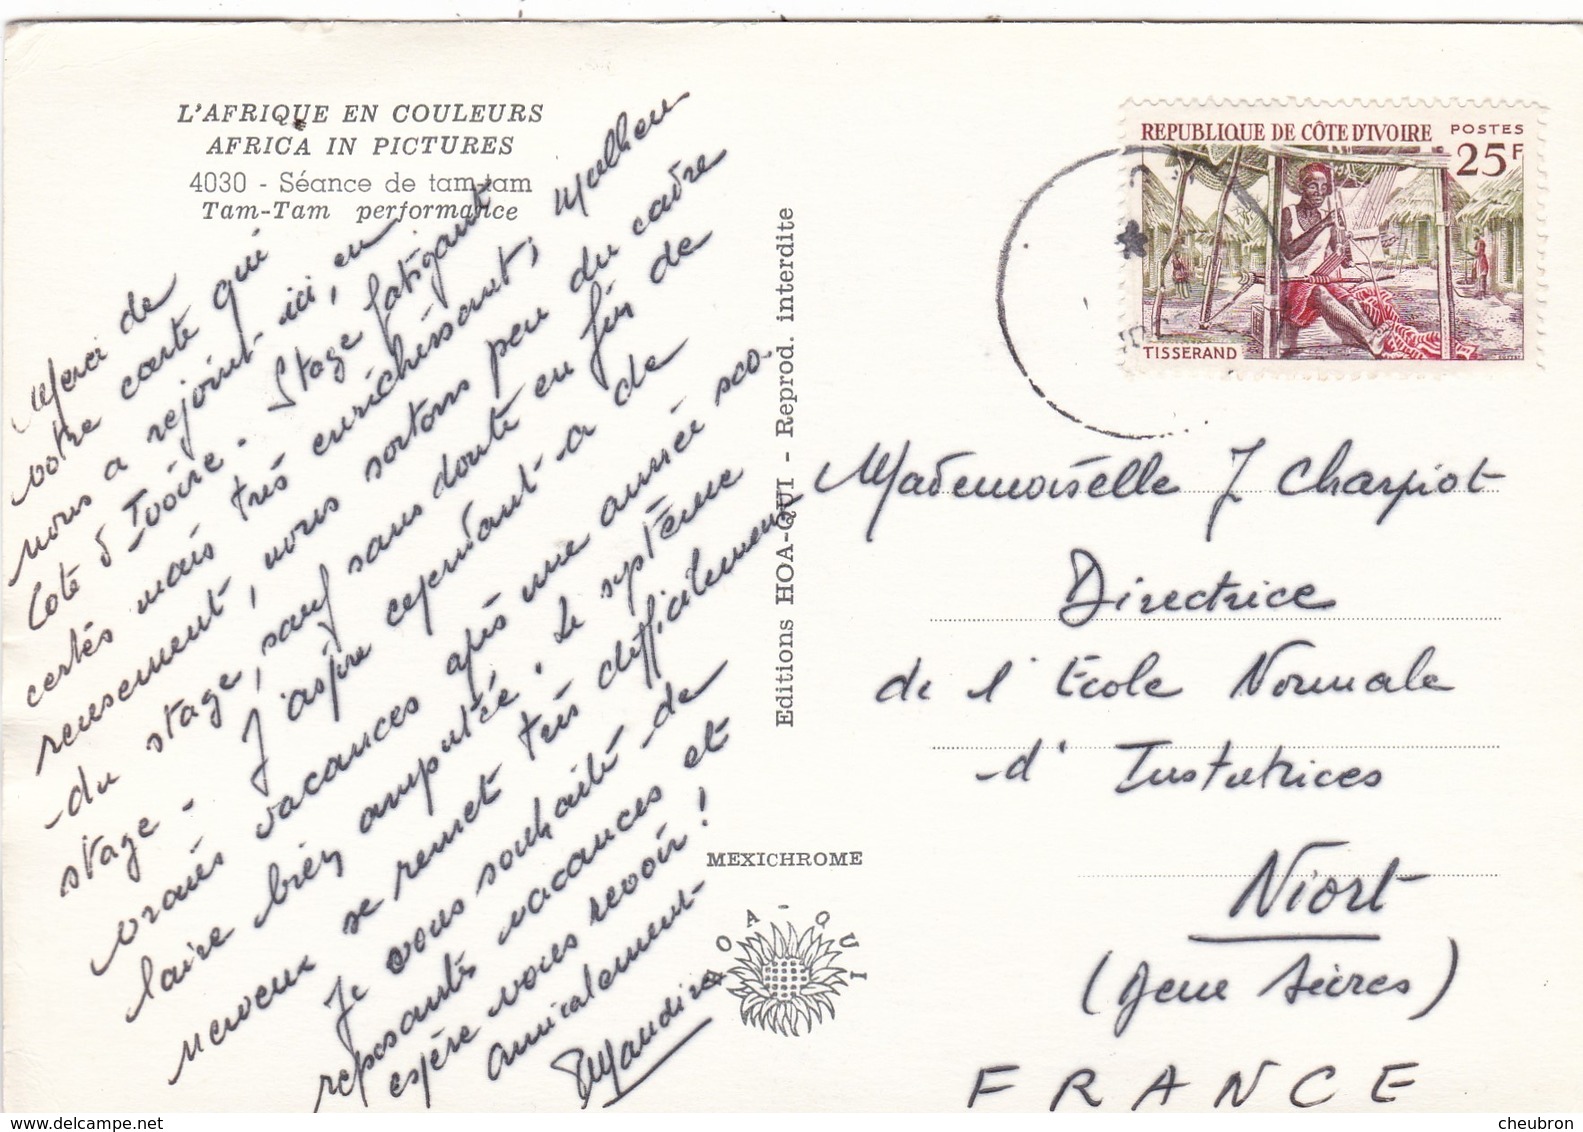 L'AFRIQUE EN COULEURS
AFRICA IN PICTURES
4030 - Séance de tam-tam
Tam-Tam performance
Merci de
votre carte qui
nous a rejoint ici, en
Côte d'Ivoire. Stage fatigant
certes mais très enrichissant, malheu
reusement, nous sortons peu du cadre
du stage, sauf sans doute en fin de
stage. J'aspire cependant à de
vraies vacances après une année sco-
laire bien amputée. Le système
nerveux se remet très difficilement
Je vous souhaite de
reposantes vacances et
espère vous revoir !
amicalement
Editions HOA-QUI - Reprod. interdite
MEXICHROME
HOA-QUI
REPUBLIQUE DE CÔTE D'IVOIRE POSTES
25F
TISSERAND
Mademoiselle J Charpiot
Directrice
de l'Ecole Normale
d'Institutrices
Niort
(Deux Sèvres)
FRANCE
cheubron